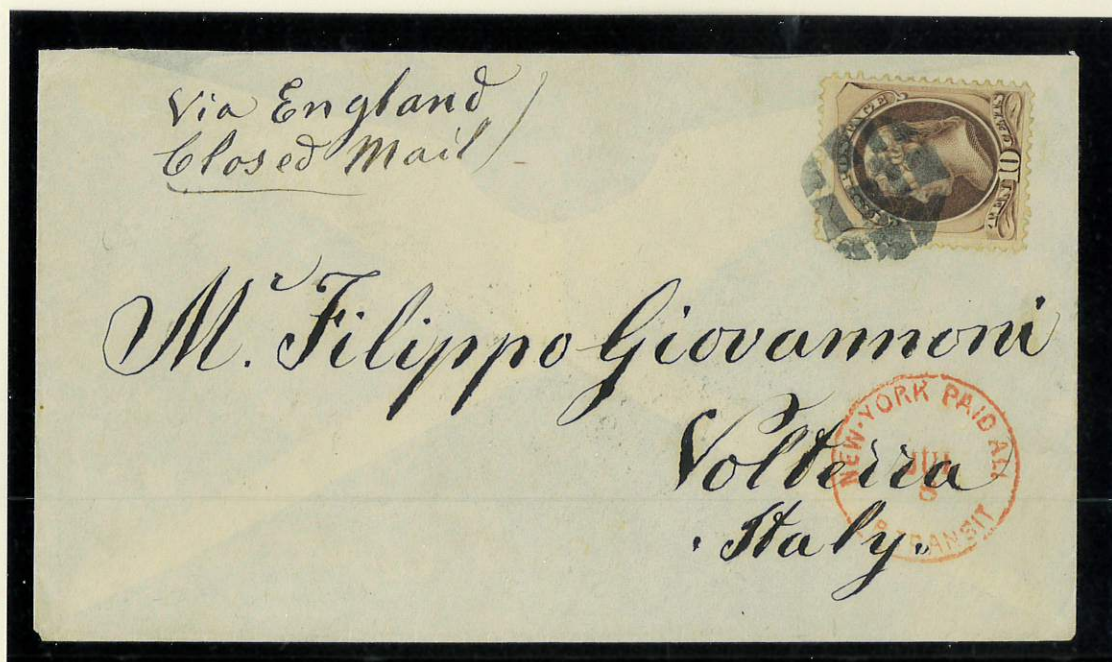 Via England
Closed Mail
U.S. POSTAGE
10
M.r Filippo Giovannoni
Volterra
Italy.
NEW-YORK PAID ALL
JUL
BR. TRANSIT